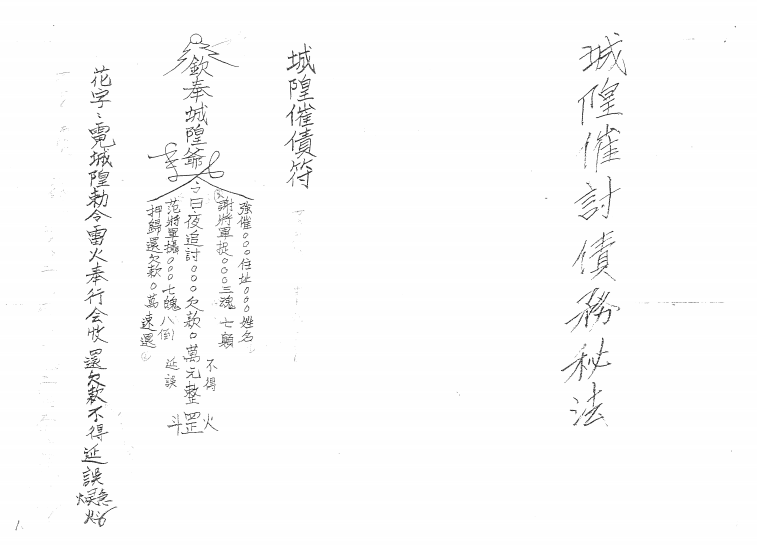 城隍催討債務秘法
城隍催債符
強催○○○住址○○○姓名
謝將軍捉○○○三魂七顛
欽奉城隍爺
日夜追討○○○欠款○萬元整
不得
延誤
罡火
斗
范將軍攝○○○七魄八倒
押歸還欠款○萬速還
花字:霓城隍勅令雷火奉行会收還欠款不得延誤
1.